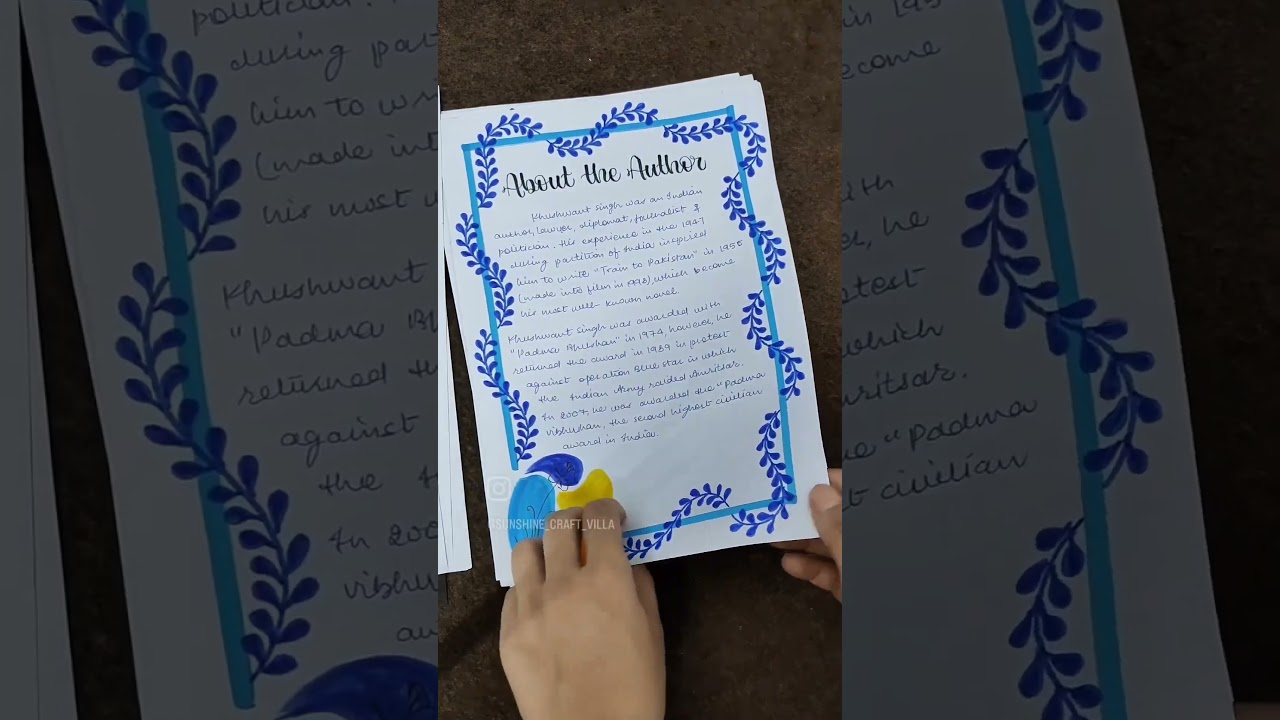 About the Author
Khushwant Singh was an Indian
author, lawyer, diplomat, journalist &
politician. His experience in the 1947
during partition of India inspired
him to write "Train to Pakistan" in 1956
(made into film in 1998), which become
his most well-known novel.
Khushwant Singh was awarded with
"Padma Bhushan" in 1974, however, he
returned the award in 1989 in protest
against operation Blue star in which
the Indian Army raided Amritsar.
In 2007, he was awarded the "Padma
vibhushan, the second highest civilian
award in India.
@SUNSHINE_CRAFT_VILLA